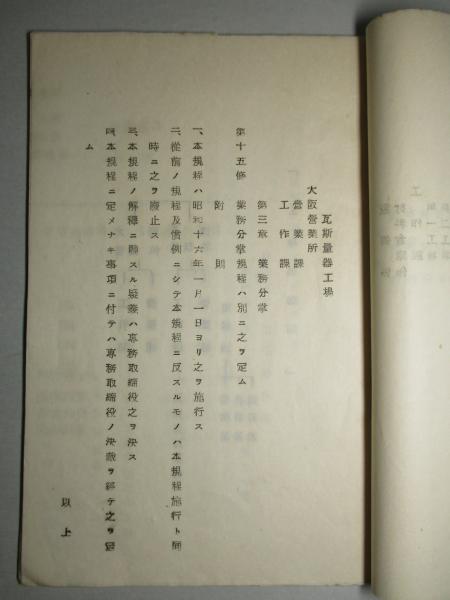 瓦斯量器工場
大阪営業所
営業課
工作課
第三章 業務分掌
第十五條 業務分掌規程ハ別ニ之ヲ定ム
附則
一、本規程ハ昭和十六年一月一日ヨリ之ヲ施行ス
二、従前ノ規程及慣例ニシテ本規程ニ反スルモノハ本規程施行ト同
時ニ之ヲ廃止ス
三、本規程ノ解釋ニ關スル疑義ハ専務取締役之ヲ決ス
四、本規程ニ定メナキ事項ニ付テハ専務取締役ノ決裁ヲ経テ之ヲ定
ム
以上